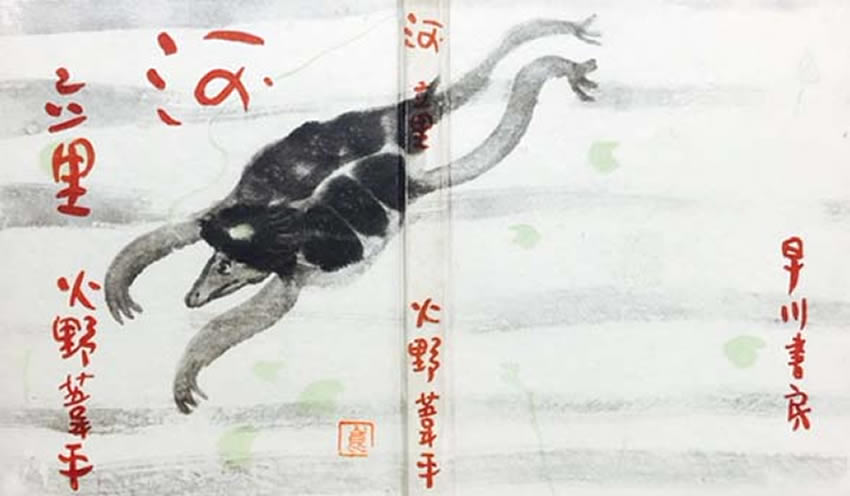 河童
火野葦平
河童
火野葦平
早川書房